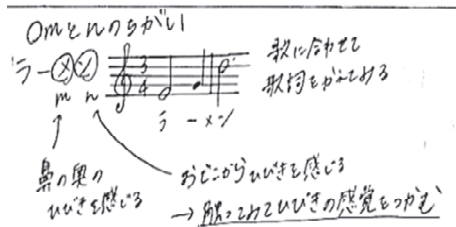 ○mとnのちがい
ラーメン
m n
3
4
ラ ーメン
歌に合わせて
歌詞をかえてみる
鼻の奥の
ひびきを感じる
おでこからひびきを感じる
→触ってみてひびきの感覚をつかむ